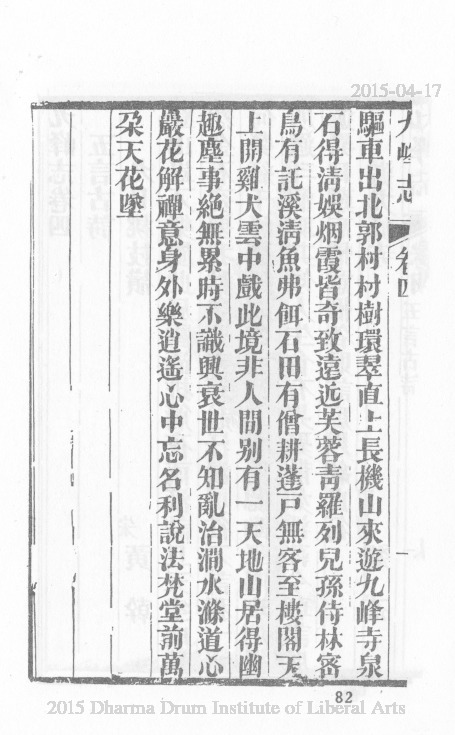 2015-04-17
九峰志 卷四 一
驅車出北郭村村樹環翠直上長機山來遊九峰寺泉
石得清娛烟霞皆奇致遠近芙蓉靑羅列兒孫侍林密
鳥有託溪淸魚弗餌石田有僧耕蓬戸無客至樓閣天
上開雞犬雲中戲此境非人間別有一天地山居得幽
趣塵事絕無累時不識興衰世不知亂治澗水滌道心
巖花解禪意身外樂逍遙心中忘名利說法梵堂前萬
朶天花墜
82
2015 Dharma Drum Institute of Liberal Arts